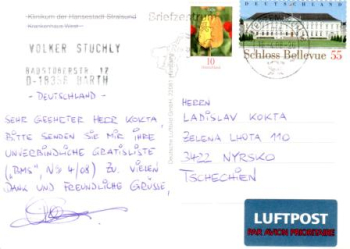 Klinikum der Hansestadt Stralsund
Krankenhaus West
Briefzentrum
VOLKER STUCHLY
BADSTÜBERSTR. 17
D-18356 BARTH
- DEUTSCHLAND -
SEHR GEEHRTER HERR KOKTA,
BITTE SENDEN SIE MIR IHRE
UNVERBINDLICHE GRATISLISTE
("RMS", N° 4/08) ZU. VIELEN
DANK UND FREUNDLICHE GRÜSSE,
10
DEUTSCHLAND
Schloss Bellevue 55
HERRN
LADISLAV KOKTA
ZELENA LHOTA 110
3422 NYRSKO
TSCHECHIEN
LUFTPOST
PAR AVION PRIORITAIRE